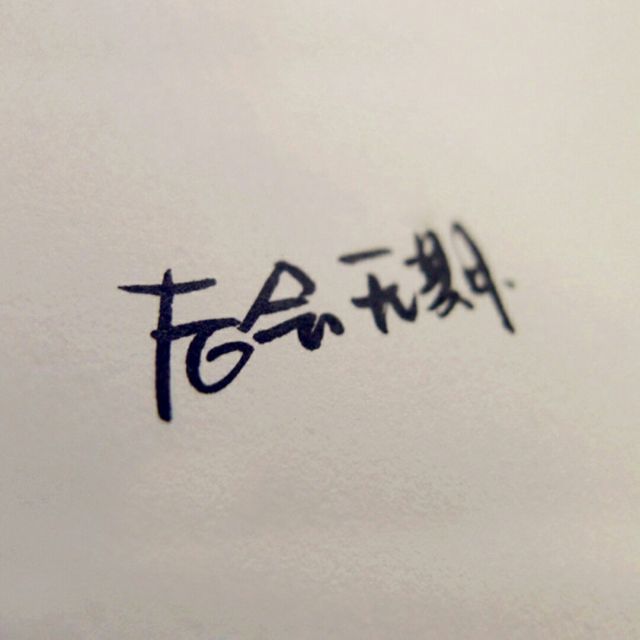 后会无期